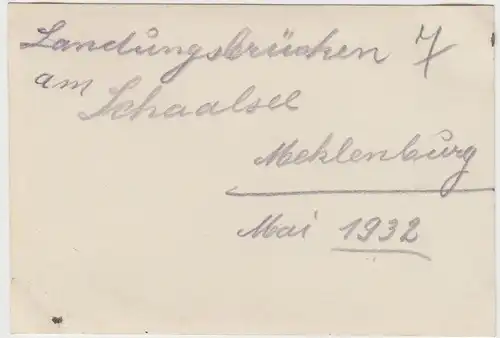 Landungsbrücken 7
am Schaalsee
Meklenburg
Mai 1932